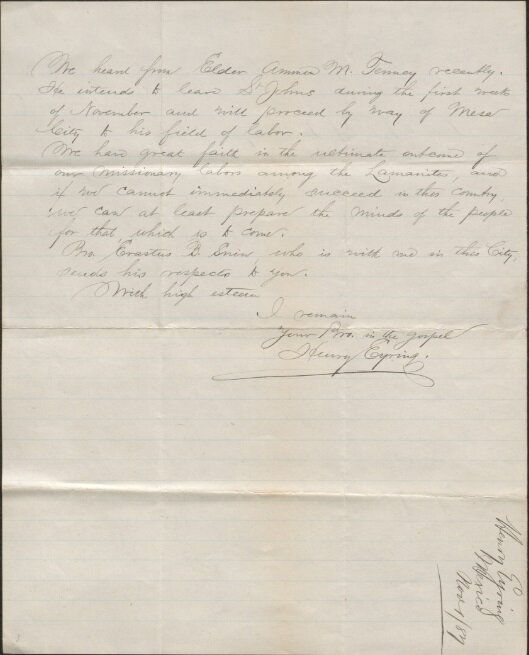 We heard from Elder Ammon M. Tenney recently.
He intends to leave St Johns during the first week
of November and will proceed by way of Mesa
City to his field of labor.
We have great faith in the ultimate outcome of
our missionary labors among the Lamanites, and
if we cannot immediately succeed in this country
we can at least prepare the minds of the people
for that which is to come.
Bro. Erastus B. Snow, who is with me in this City,
sends his respects to you.
With high esteem
I remain
Your Bro. in the gospel
Henry Eyring.
Henry Eyring
Mexico
Nov 1/87